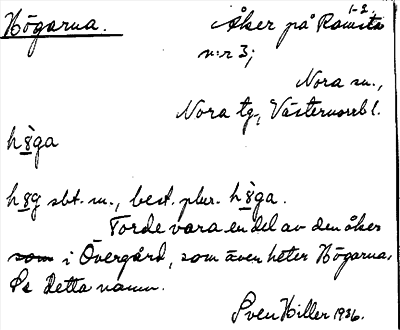 Högarna. Åker på Ramsta 1-2.
n:r 3;
Nora sn.,
Nora tg., Västernorrl l.
hö̀ga
hög sbt. m., best. plur. hö̀ga.
Torde vara en del av den åker
som i Övergård, som även heter Högarna.
Se detta namn.
Sven Hiller 1936.